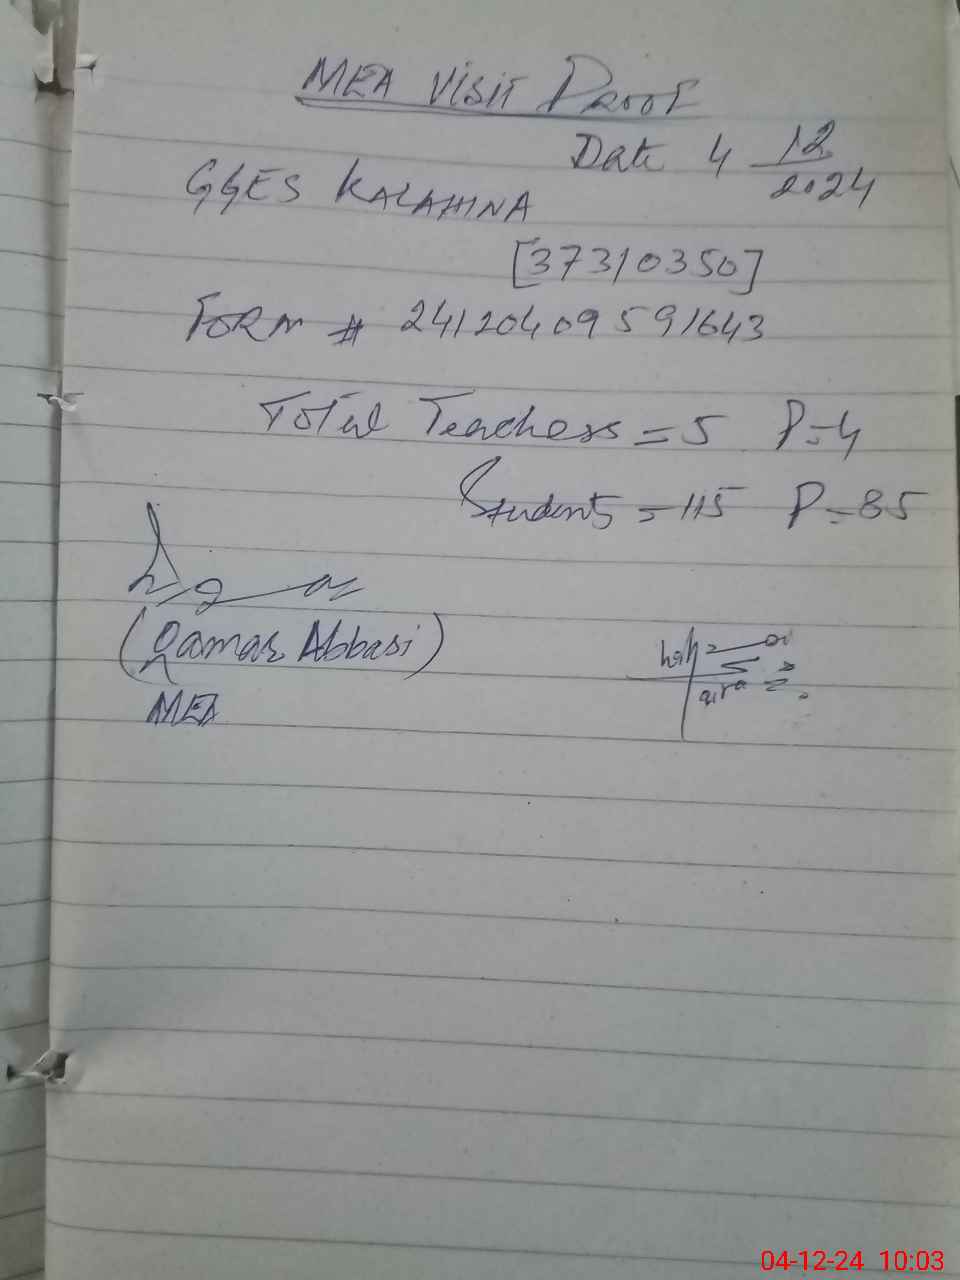 MEA VISIT PROOF
Date 4 12/2024
GGES KALAHINA
[37310350]
FORM # 24120409591643
Total Teachers = 5 P=4
Students = 115 P=85
(Qamar Abbasi)
MEA
04-12-24 10:03